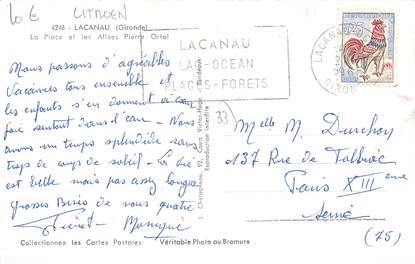 10 € CITROEN
4246 - LACANAU (Gironde)
La Place et les Allées Pierre Ortal
LACANAU
LAC-OCEAN
PLAGES-FORETS
LACANAU
GIRONDE
Nous passons d'agréables
vacances tous ensemble et
les enfants s'en donnent à cœur
joie surtout dans l'eau - Nous
avons un temps splendide sans
trop de coups de soleil - La vie
est belle mais pas assez longue
Grosses Bises de nous quatre
Monique
33
L. Chatagneau, 92, Cours Victor-Hugo - Bordeaux
Reproduction interdite
Melle M. Durchon
137 Rue de Tolbiac
Paris XIII ème
Seine
(75)
Collectionnez les Cartes Postales Véritable Photo au Bromure